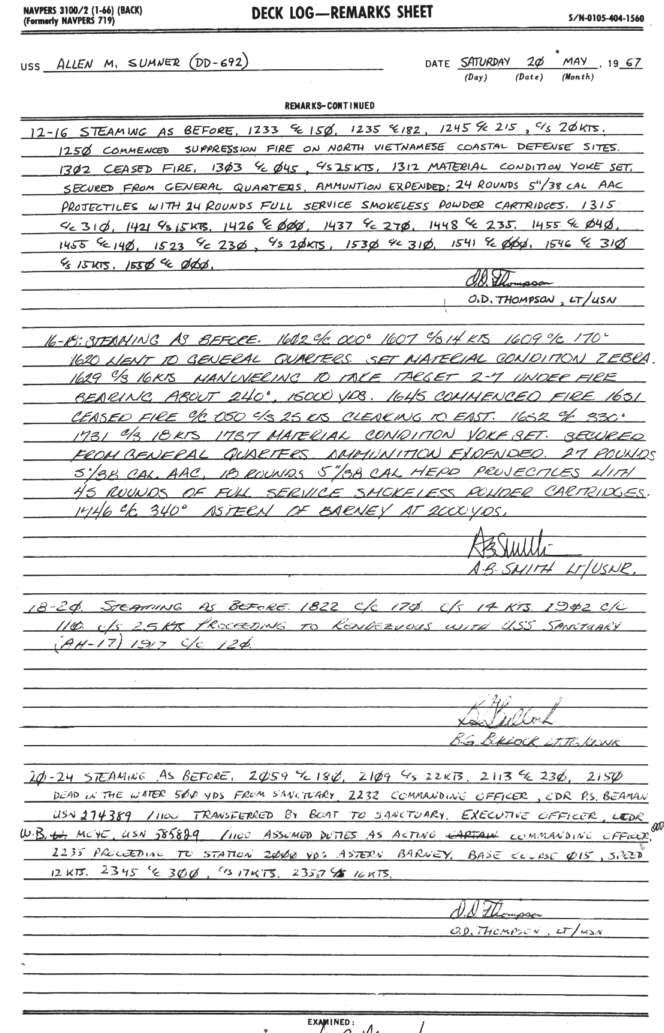 NAVPERS 3100/2 (1-66) (BACK)
(Formerly NAVPERS 719)
DECK LOG—REMARKS SHEET
S/N-0105-404-1560
USS ALLEN M. SUMNER (DD-692) DATE SATURDAY 20 MAY, 1967
(Day) (Date) (Month)
REMARKS—CONTINUED
12-16 STEAMING AS BEFORE, 1233 C/C 150, 1235 C/C 182, 1245 C/C 215, C/S 20KTS.
1250 COMMENCED SUPPRESSION FIRE ON NORTH VIETNAMESE COASTAL DEFENSE SITES.
1302 CEASED FIRE, 1303 C/C 045, C/S 25KTS, 1312 MATERIAL CONDITION YOKE SET,
SECURED FROM GENERAL QUARTERS, AMMUNTION EXPENDED: 24 ROUNDS 5"/38 CAL AAC
PROJECTILES WITH 24 ROUNDS FULL SERVICE SMOKELESS POWDER CARTRIDGES. 1315
C/C 310, 1421 C/S 15KTS, 1426 C/C 000, 1437 C/C 270, 1448 C/C 235. 1455 C/C 040,
1455 C/C 140, 1523 C/C 230, C/S 20KTS, 1530 C/C 310, 1541 C/C 000, 1546 C/C 310
C/S 15KTS. 1550 C/C 000.
O.D. Thompson
O.D. THOMPSON, LT/USN
16-18: STEAMING AS BEFORE. 1602 C/C 000° 1607 C/S 14 KTS 1609 C/C 170°
1620 WENT TO GENERAL QUARTERS. SET MATERIAL CONDITION ZEBRA.
1629 C/S 16KTS MANUVERING TO TAKE TARGET 2-7 UNDER FIRE
BEARING ABOUT 240°, 15000 YDS. 1645 COMMENCED FIRE 1651
CEASED FIRE C/C 050 C/S 25 KTS CLEARING TO EAST. 1652 C/C 330°
1731 C/S 18 KTS 1737 MATERIAL CONDITION YOKE SET. SECURED
FROM GENERAL QUARTERS. AMMUNITION EXPENDED. 27 ROUNDS
5"/38 CAL. AAC, 18 ROUNDS 5"/38 CAL HEPD PROJECTILES WITH
45 ROUNDS OF FULL SERVICE SMOKELESS POWDER CARTRIDGES.
1746 C/C 340° ASTERN OF BARNEY AT 2000 YDS.
A B Smith
A.B. SMITH LT/USNR.
18-20. STEAMING AS BEFORE. 1822 C/C 170. C/S 14 KTS. 1902 C/C
110. C/S 25 KTS PROCEEDING TO RENDEZVOUS WITH USS SANCTUARY
(AH-17) 1917 C/C 120.
20-24 STEAMING AS BEFORE, 2059 C/C 180, 2109 C/S 22KTS, 2113 C/C 230, 2150
DEAD IN THE WATER 500 YDS FROM SANCTUARY. 2232 COMMANDING OFFICER, CDR P.S. BEAMAN
USN 274389 /1100 TRANSFERRED BY BOAT TO SANCTUARY. EXECUTIVE OFFICER, LCDR
W.B. MOYE, USN 585829 /1100 ASSUMED DUTIES AS ACTING CAPTAIN COMMANDING OFFICER.
2235 PROCEEDING TO STATION 2000 YDS ASTERN BARNEY, BASE COURSE 015, SPEED
12 KTS. 2345 C/C 300, C/S 17KTS. 2357 C/S 16 KTS.
O.D. Thompson
O.D. THOMPSON, LT/USN
EXAMINED: